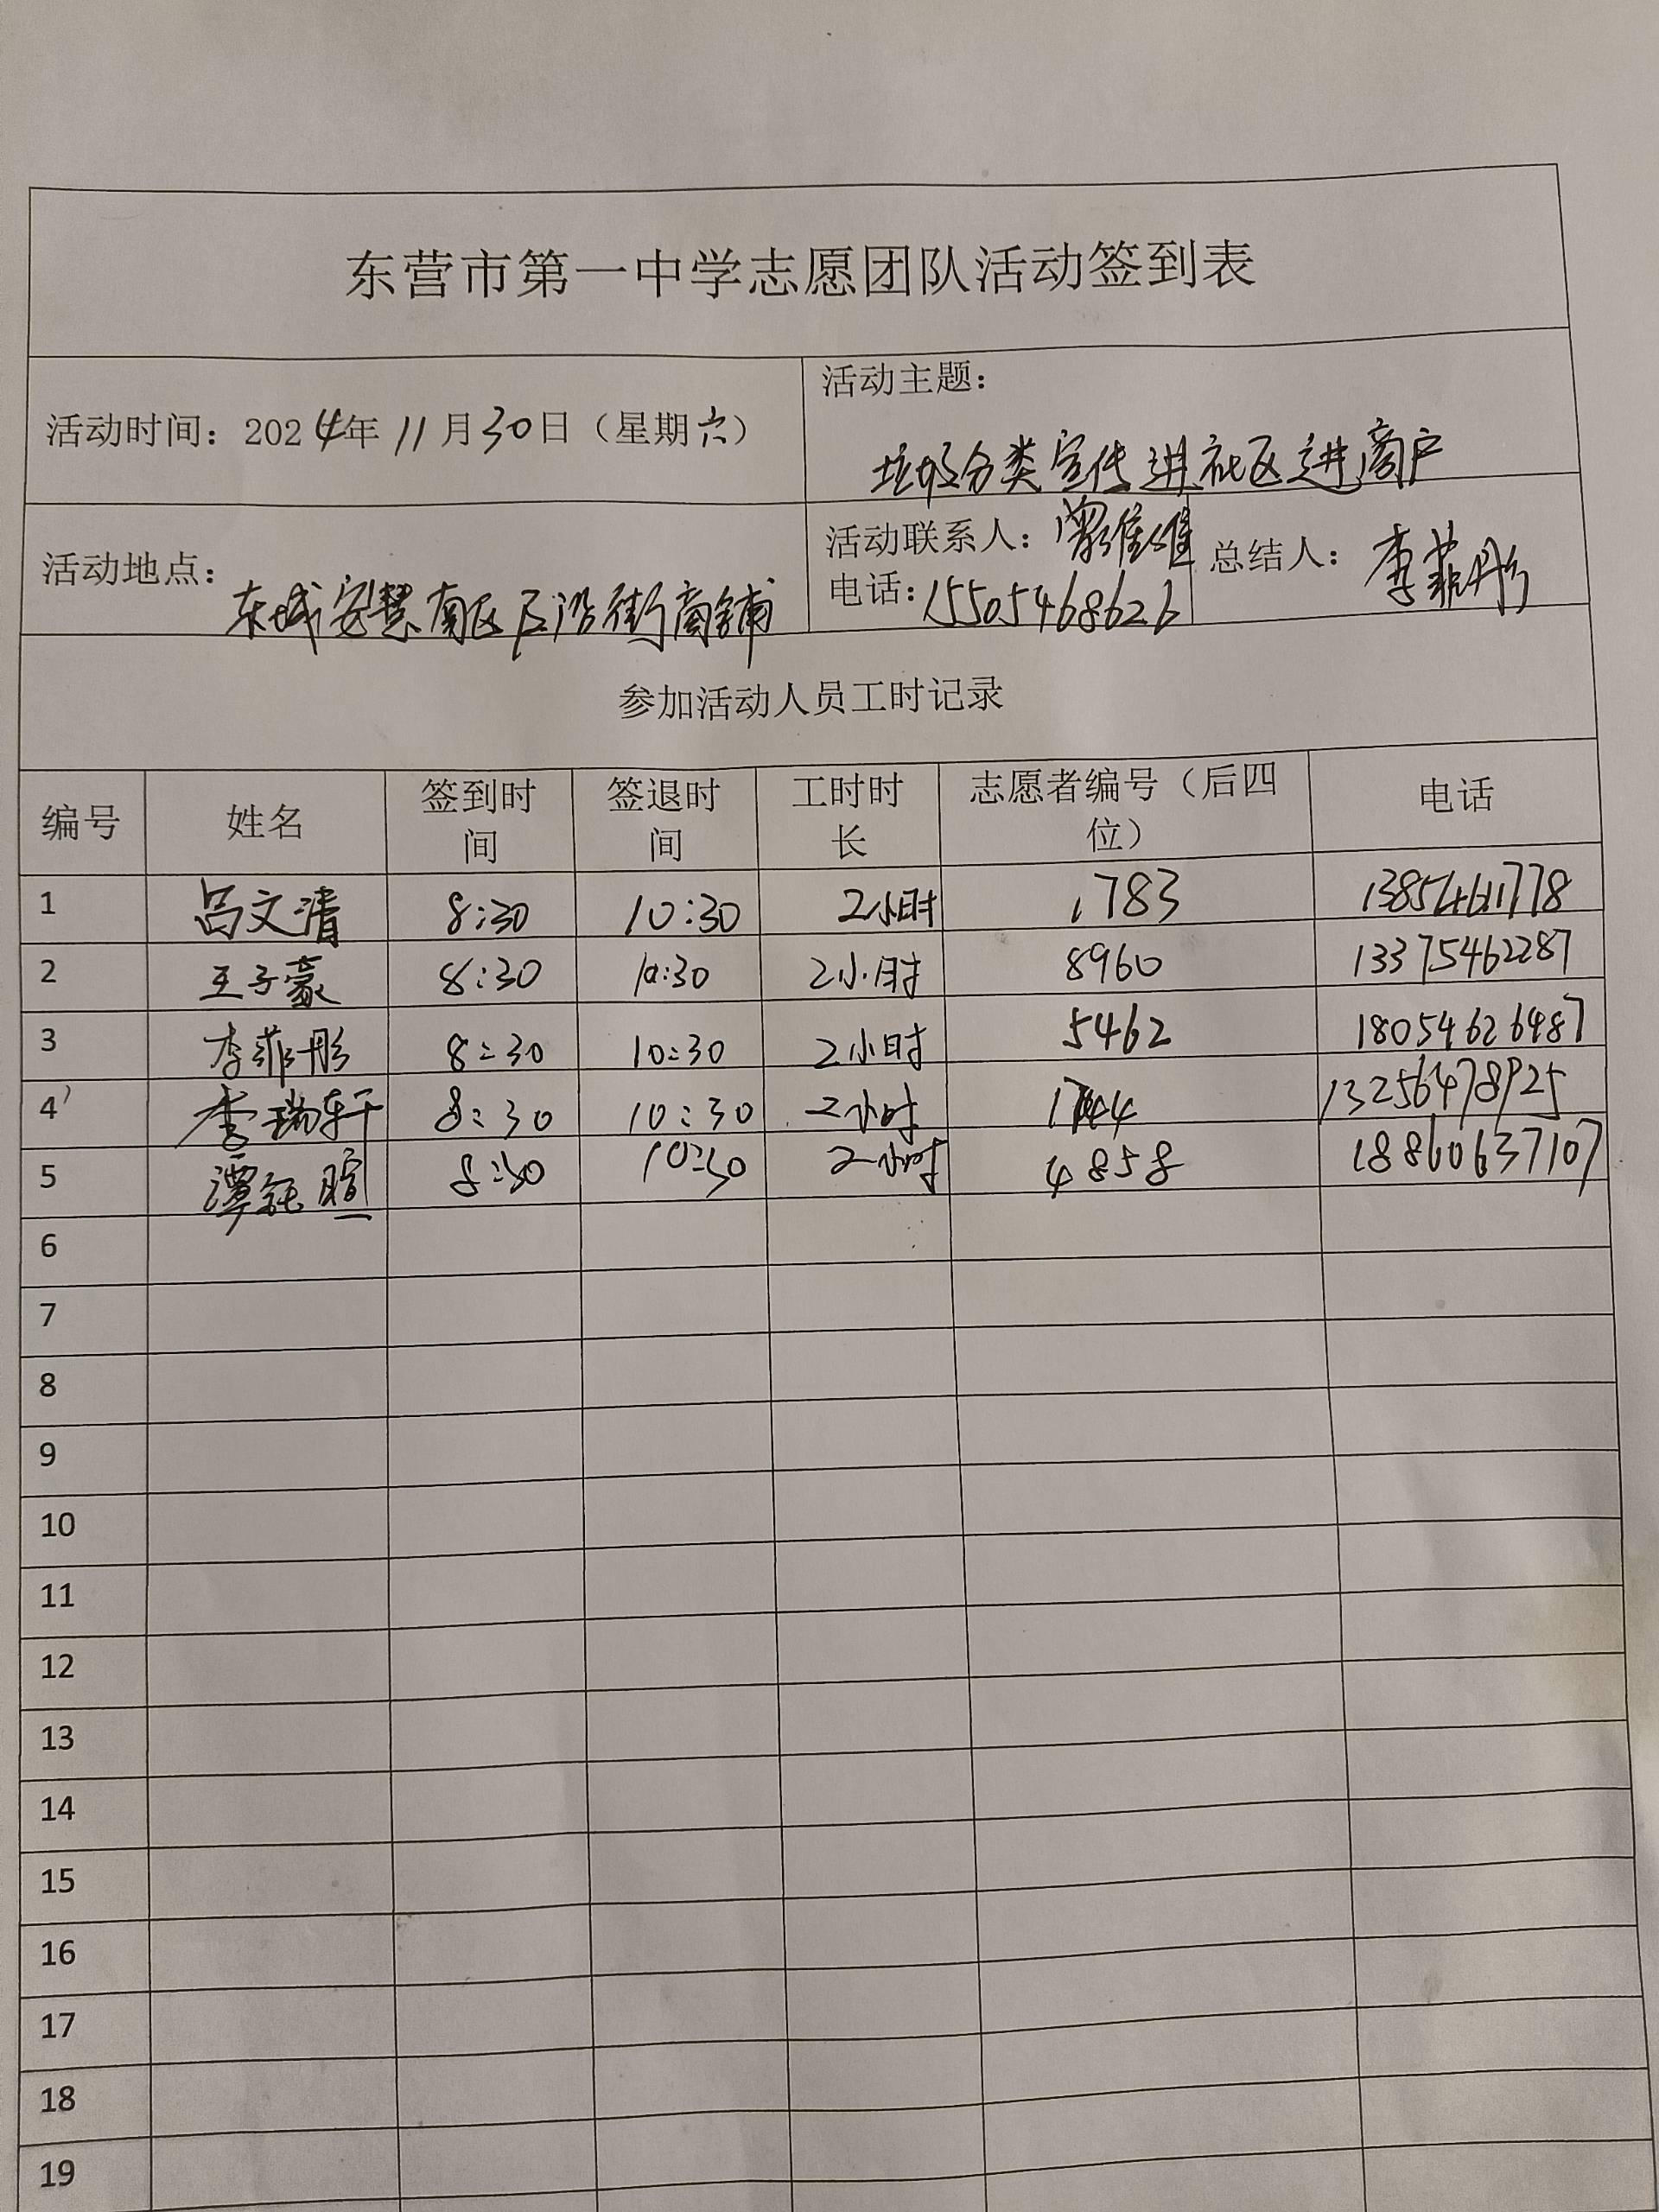 东营市第一中学志愿团队活动签到表
活动时间：2024年11月30日（星期六）
活动主题：
垃圾分类宣传进社区进商户
活动地点：东城安慧南区及沿街商铺
活动联系人：
电话：15505468626
总结人：李菲彤
参加活动人员工时记录
编号 姓名 签到时间 签退时间 工时时长 志愿者编号（后四位） 电话
1 吕文清 8:30 10:30 2小时 1783
2 王子豪 8:30 10:30 2小时 8960 13375462287
3 李菲彤 8:30 10:30 2小时 5462 18054626487
4 李瑞轩 8:30 10:30 2小时 13256478925
5 8:30 10:30 2小时 4858 18860637107
6
7
8
9
10
11
12
13
14
15
16
17
18
19